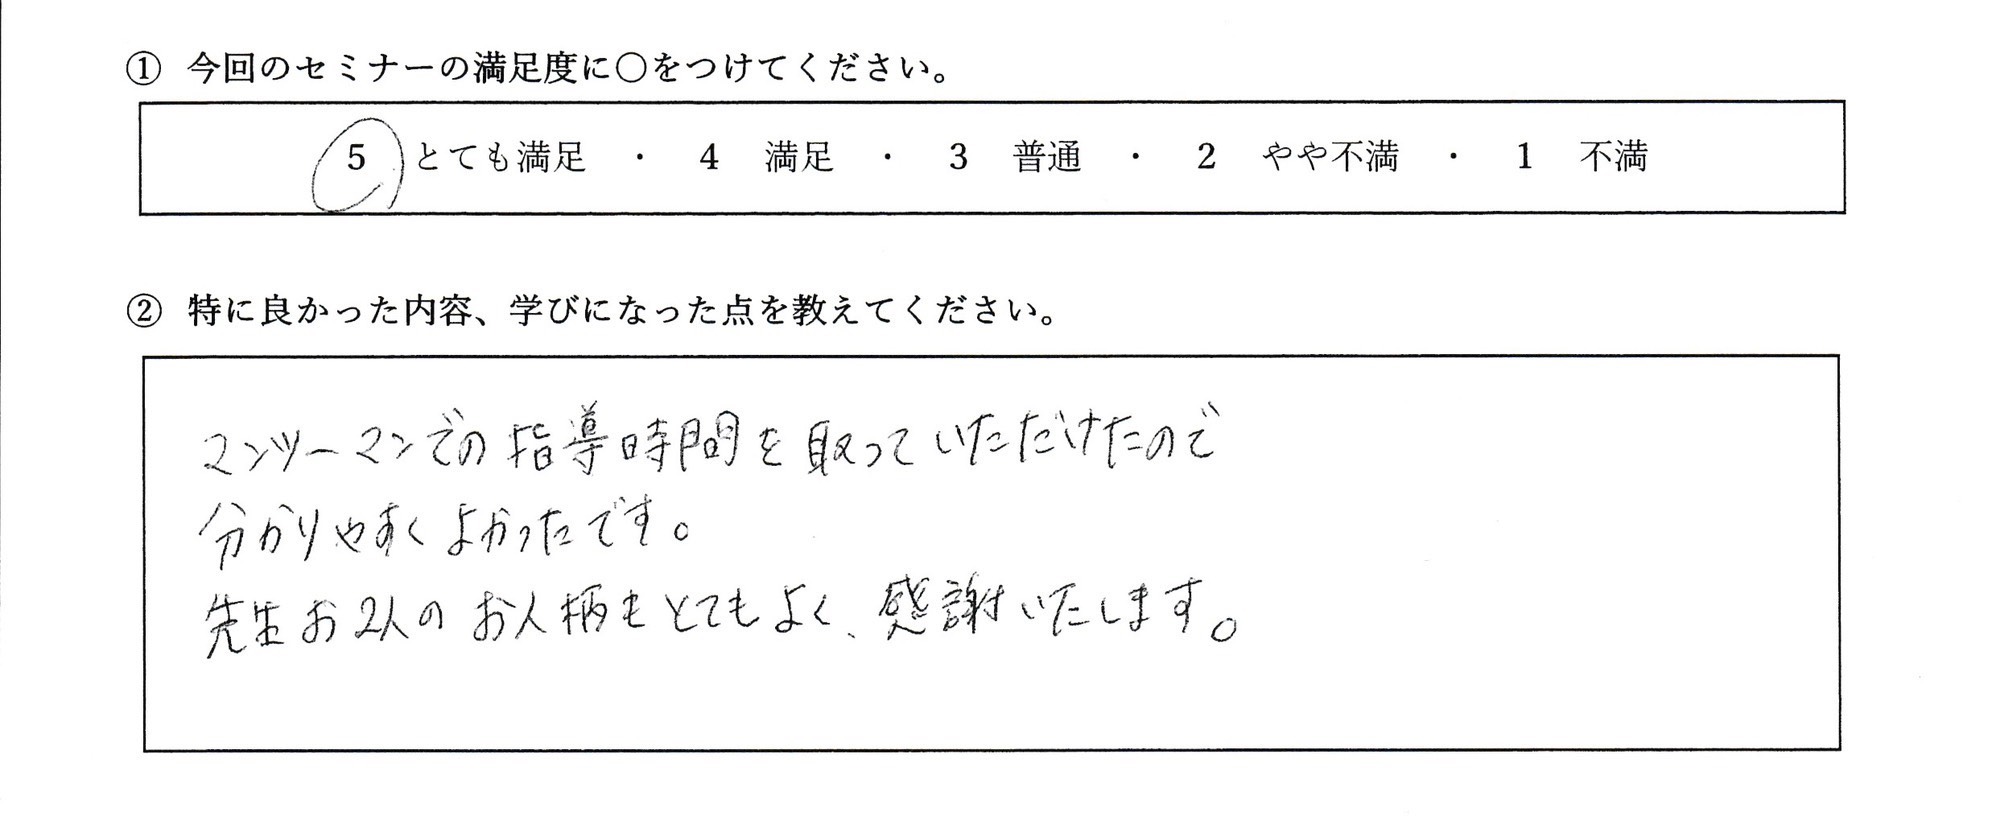 ① 今回のセミナーの満足度に○をつけてください。
5 とても満足 ・ 4 満足 ・ 3 普通 ・ 2 やや不満 ・ 1 不満
② 特に良かった内容、学びになった点を教えてください。
マンツーマンでの指導時間を取っていただけたので
分かりやすくよかったです。
先生お2人のお人柄もとてもよく、感謝いたします。